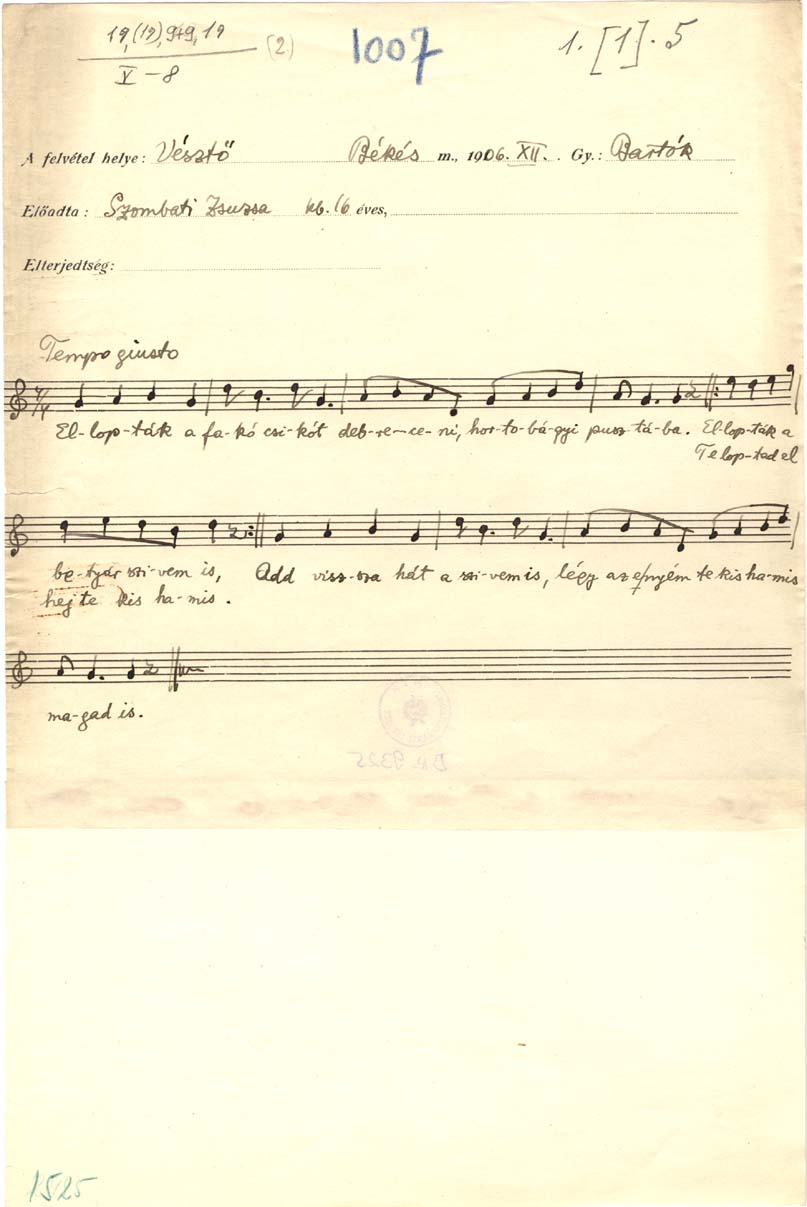 19, (19), 9+9, 19 (2) 1007 1. [1]. 5
V – 8
A felvétel helye: Vésztő Békés m., 1906. XII. Gy.: Bartók
Előadta: Szombati Zsuzsa kb. 16 éves,
Elterjedtség:
Tempo giusto
El-lop-ták a fa-kó csi-kót deb-re-ce-ni, hor-to-bá-gyi pusz-tá-ba. El-lop-ták a
Te lop-tad el
be-tyár szi-vem is, Add visz-sza hát a szi-vem is, légy az enyém te kis ha-mis
hej te kis ha-mis.
ma-gad is.
BR 9325
1525